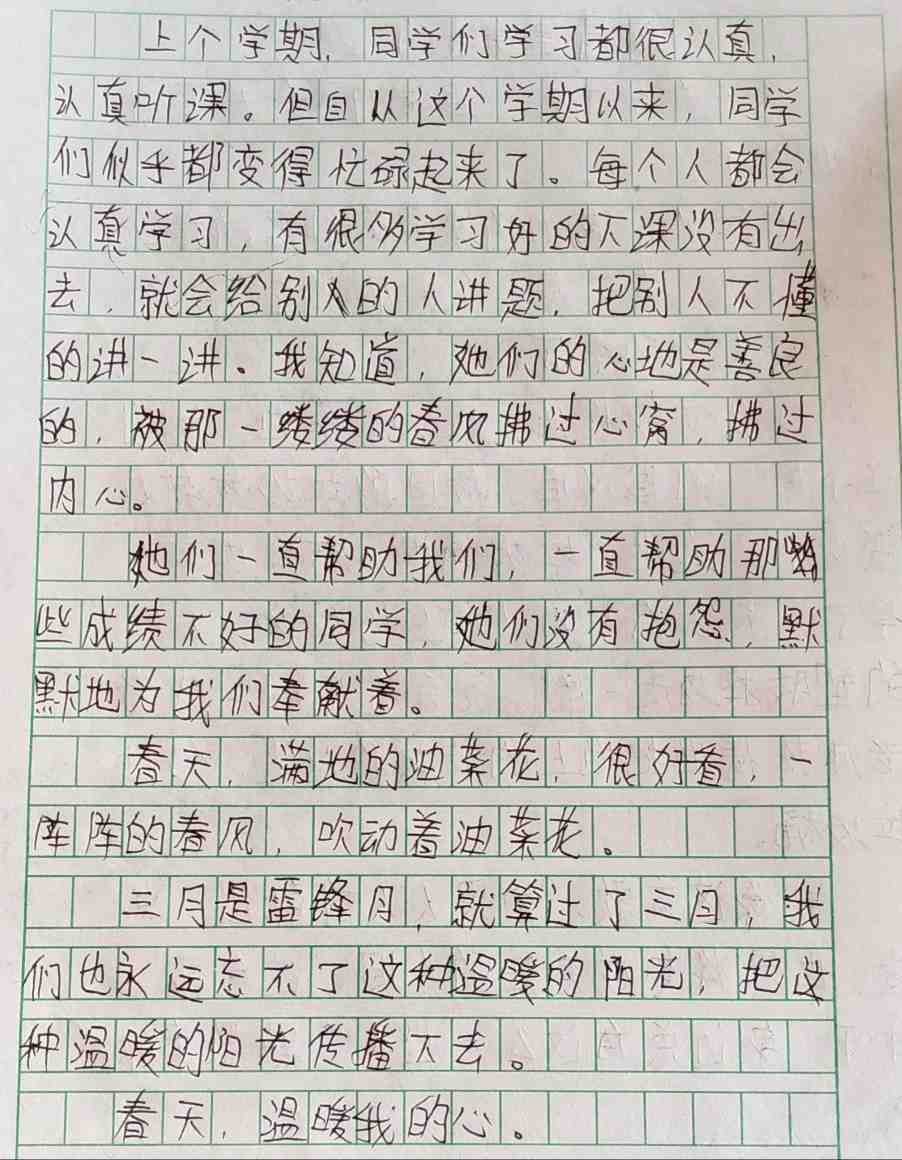 上个学期，同学们学习都很认真，
认真听课。但自从这个学期以来，同学
们似乎都变得忙碌起来了。每个人都会
认真学习，有很多学习好的下课没有出
去，就会给别人的人讲题，把别人不懂
的讲一讲。我知道，她们的心地是善良
的，被那一缕缕的春风拂过心窝，拂过
内心。
她们一直帮助我们，一直帮助那
些成绩不好的同学，她们没有抱怨，默
默地为我们奉献着。
春天，满地的油菜花，很好看，一
阵阵的春风，吹动着油菜花。
三月是雷锋月，就算过了三月，我
们也永远忘不了这种温暖的阳光，把这
种温暖的阳光传播下去。
春天，温暖我的心。